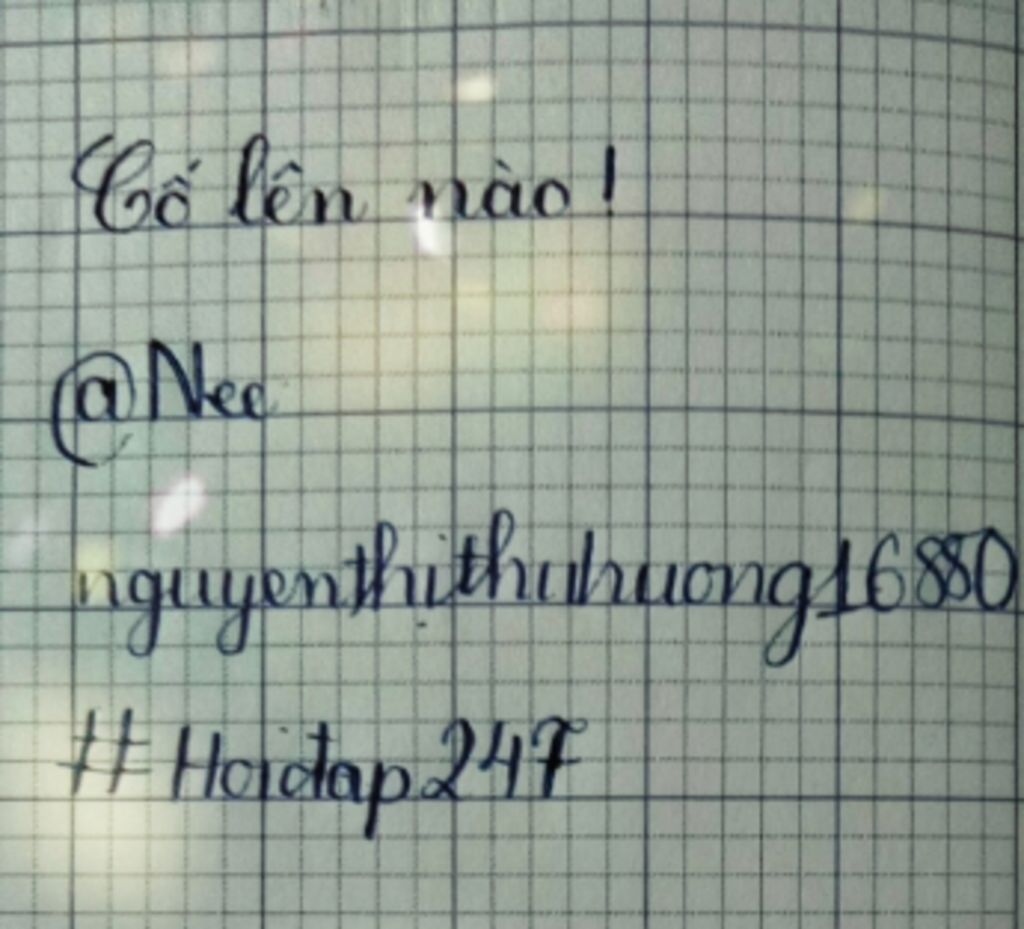 Cố lên nào!
@Nee
nguyenthịthuhuong16880
#Hoidap247